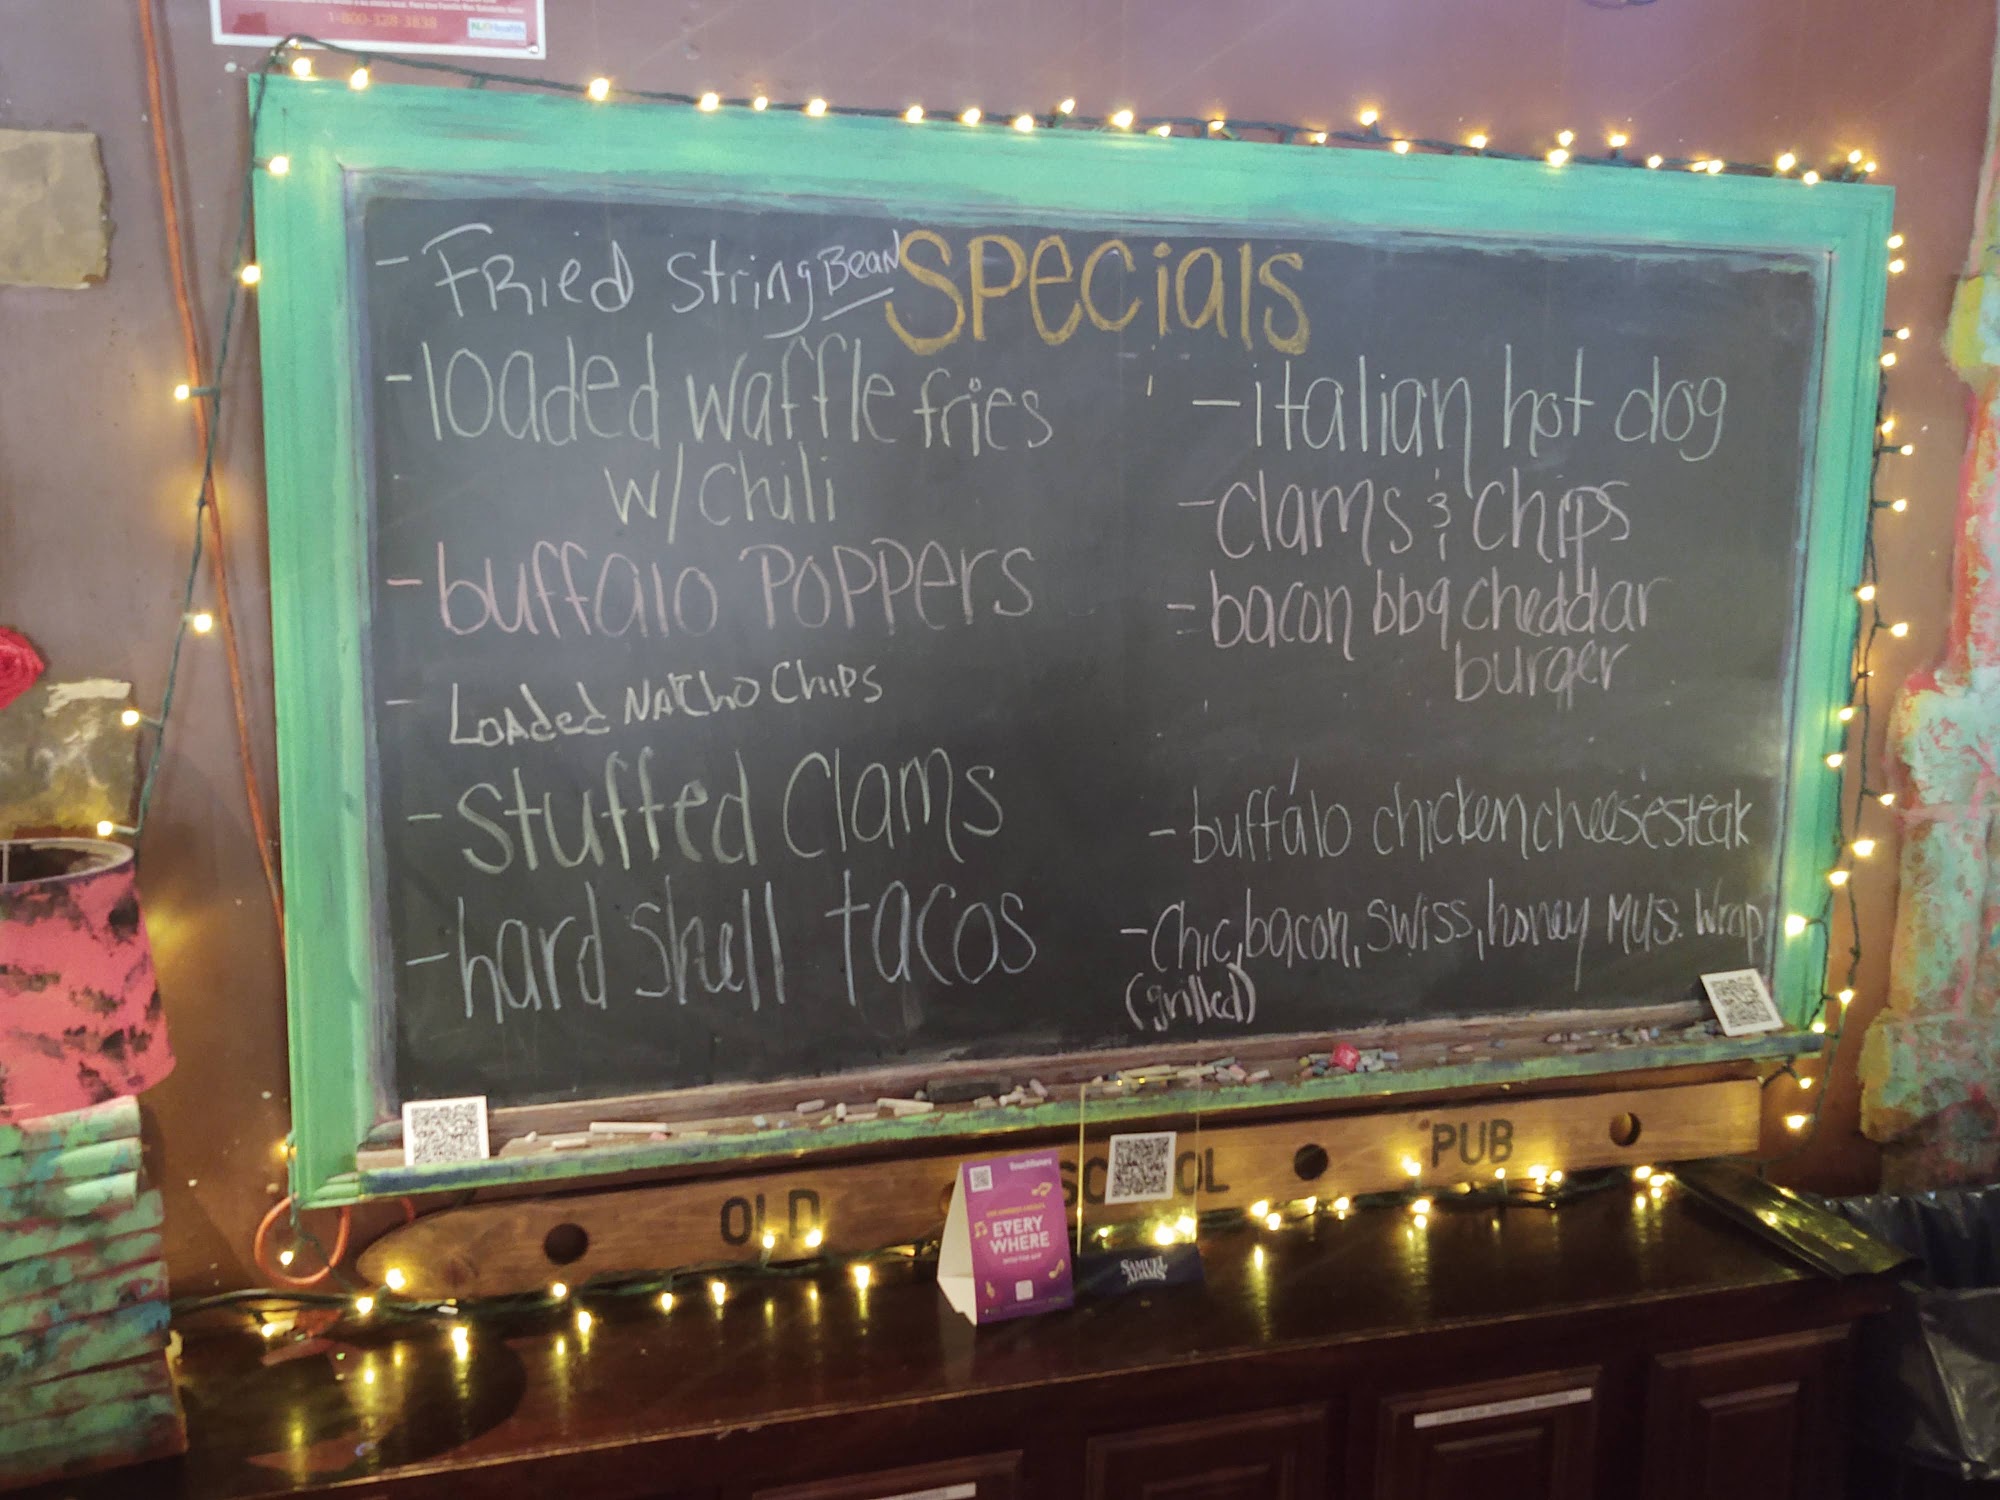 1-800-328-3838
NJHealth
SPecials
- FRied StringBeaN
- loaded waffle fries
w/ Chili
- buffalo POPPers
- Loaded Natcho Chips
- Stuffed Clams
- hard Shell tacos
- italian hot dog
- Clams & Chips
- bacon bbq cheddar
burger
- buffalo chicken cheesesteak
- Chic, bacon, Swiss, honey Mus. Wrap
(grilled)
OLD SC OL PUB
TouchTunes
EVERY
WHERE
SAMUEL
ADAMS